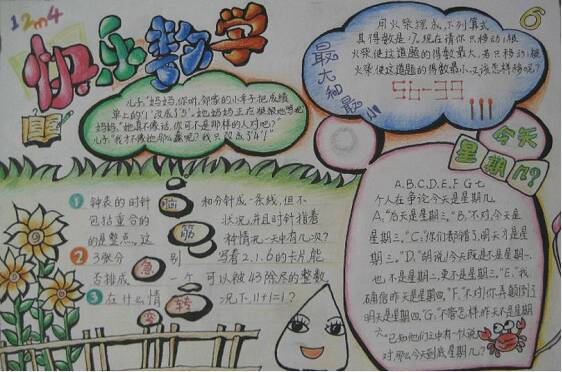 12m4
快乐数学
6
儿子:"妈妈,你听,邻家的小李子把成绩
单上的'1'没
妈妈:"她真不像话,你可不是那样的人对吧?"
儿子:"我才不像他那么蠢呢?我只
最大和最小
用火柴摆成,下列算式
其得数是17.现在请你只移动1根
火柴使这道题的得数最大,若只移动1根
火柴使这道题的得数最小,又该怎样移呢?
56-39
今天
星期几?
脑筋急转弯
1 钟表的时针和分针成一条线,但不
包括重合的状况,并且时针指着
的是整点,这种情况一天中有几次?
2 3张分别写着2.1.6的卡片,能
否排成一个可以被43除尽的整数
3 在什么情况下,1+1=1?
A.B.C.D.E.F.G七
个人在争论今天是星期几
A,"后天是星期三。"B,"不对,今天是
星期三。"C,"你们都错了,明天才是星
期三。"D."胡说!今天既不是星期一
也,不是星期二,更不是星期三。"E,"我
确信昨天是星期四。"F."不对!你弄颠倒了
明天是星期四。"G,"不管怎样,昨天不是星期
六。"已知他们之中有一个说
对,那么今天到底星期几?